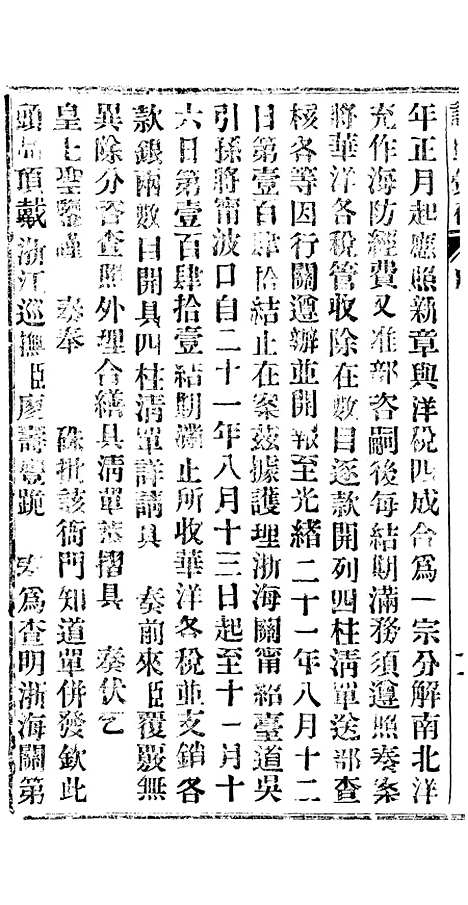 年正月起應照新章與洋稅四成合爲一宗分解南北洋
充作海防經費又准部咨嗣後每結期滿務須遵照奏案
將華洋各稅管收除在數目逐款開列四柱清單送部查
核各等因行關遵辦並開報至光緒二十一年八月十二
日第壹百肆拾結止在案茲據護理浙海關甯紹臺道吳
引孫將甯波口自二十一年八月十三日起至十一月十
六日第壹百肆拾壹結期滿止所收華洋各稅並支銷各
款銀兩數目開具四柱清單詳請具 奏前來臣覆覈無
異除分咨查照外理合繕具清單恭摺具 奏伏乞
皇上聖鑒謹 奏奉 硃批該衙門知道單併發欽此
頭品頂戴浙江巡撫臣廖壽豐跪 奏爲查明浙海關第